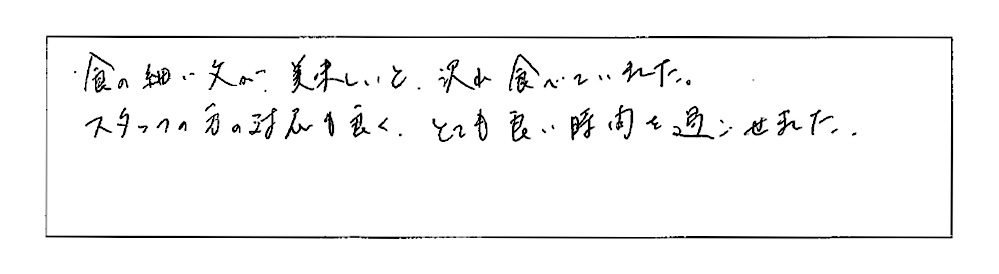 ・食の細い父が、美味しいと、沢山食べていました。
スタッフの方の対応も良く、とても良い時間を過ごせました。